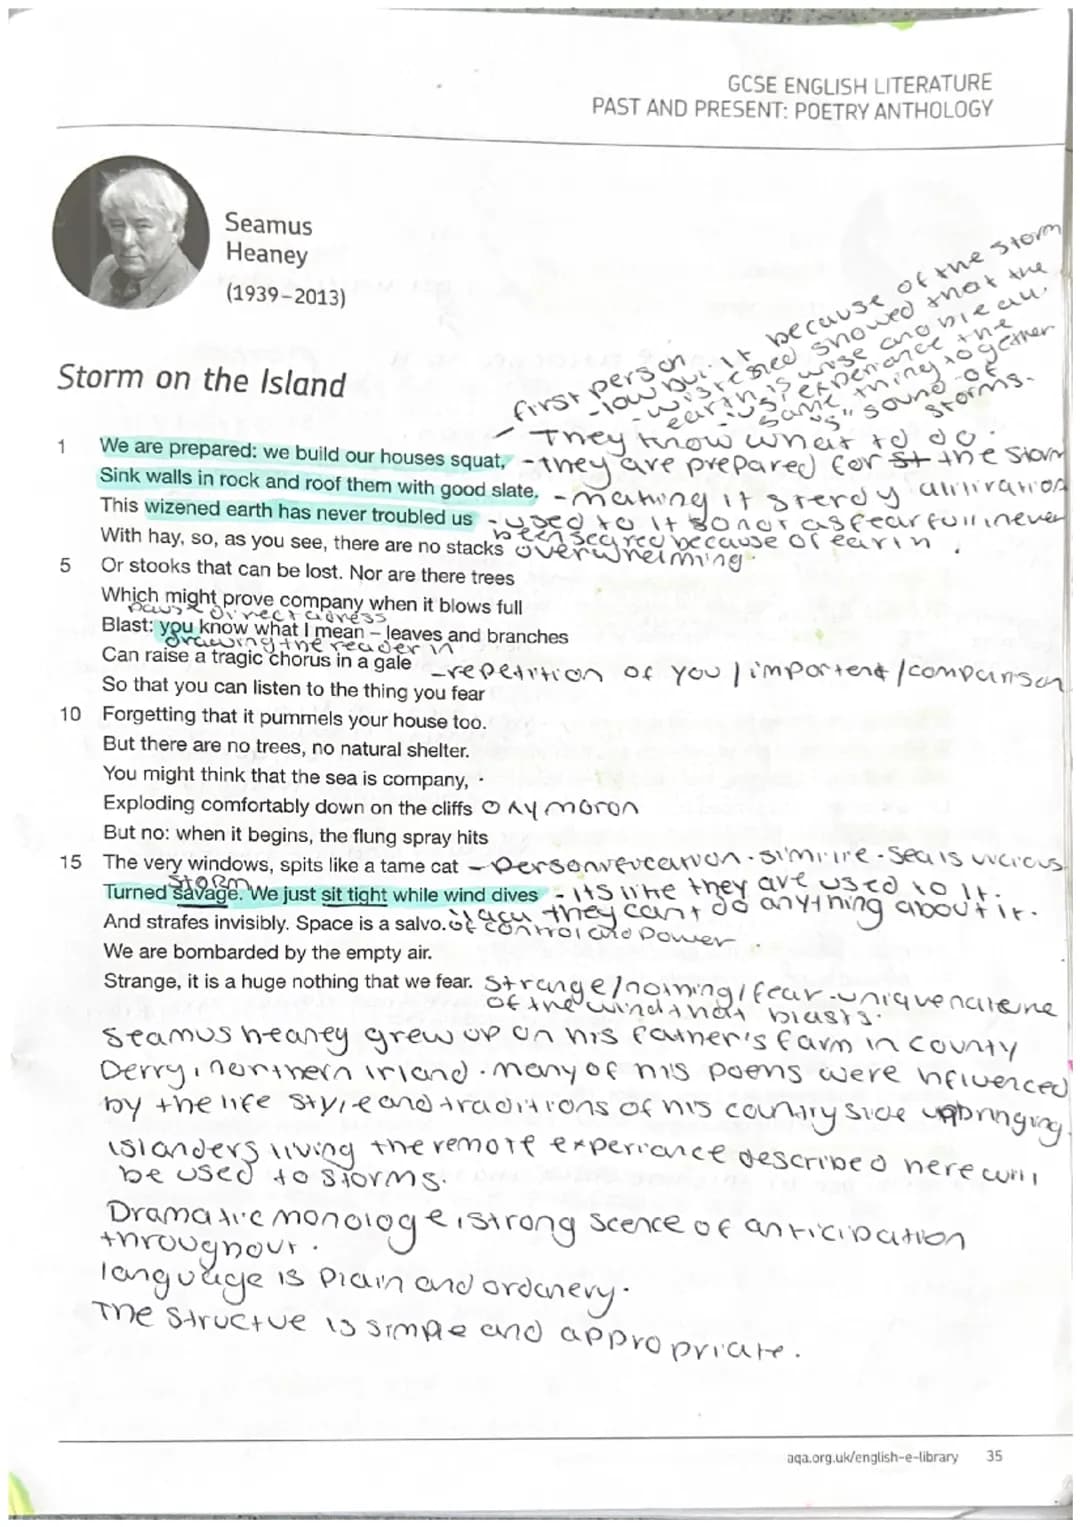 GCSE ENGLISH LITERATURE
PAST AND PRESENT: POETRY ANTHOLOGY
Seamus
Heaney
(1939–2013)
Storm on the Island
first person
-low built because of the storm
-wistened showed that the
earth is wise and bleau.
-"us" experiance the
same thing together
"us" sound of
storms.
They know what to do.
1 We are prepared: we build our houses squat, -they are prepared for st the storm
Sink walls in rock and roof them with good slate. -making it sterdy alliration
This wizened earth has never troubled us -used to it so not as fearfull never
been scared because of earth.
With hay, so, as you see, there are no stacks overwhelming
5 Or stooks that can be lost. Nor are there trees
Which might prove company when it blows full
pause direct adress
Blast: you know what I mean – leaves and branches
drawing the reader in
Can raise a tragic chorus in a gale -repetition of you / importent / comparison
So that you can listen to the thing you fear
10 Forgetting that it pummels your house too.
But there are no trees, no natural shelter.
You might think that the sea is company,
Exploding comfortably down on the cliffs oxymoron
But no: when it begins, the flung spray hits
15 The very windows, spits like a tame cat - . sea is vicious
storm
Turned savage. We just sit tight while wind dives - its like they are used to it.
they cant do anything about it.
And strafes invisibly. Space is a salvo. of control and power
We are bombarded by the empty air.
Strange, it is a huge nothing that we fear. Strange/nothing/fear-unique nature
of the wind that blasts.
Seamus heaney grew up on his father's farm in county
Derry, northern irland. many of his poems were nfluenced
by the life style and traditions of his country side upbringing
islanders living the remote experiance described here will
be used to storms.
Dramatic monologe, strong scence of anticipation
throughout.
language is plain and ordanery.
The structue is simple and appropriate.
aqa.org.uk/english-e-library 35